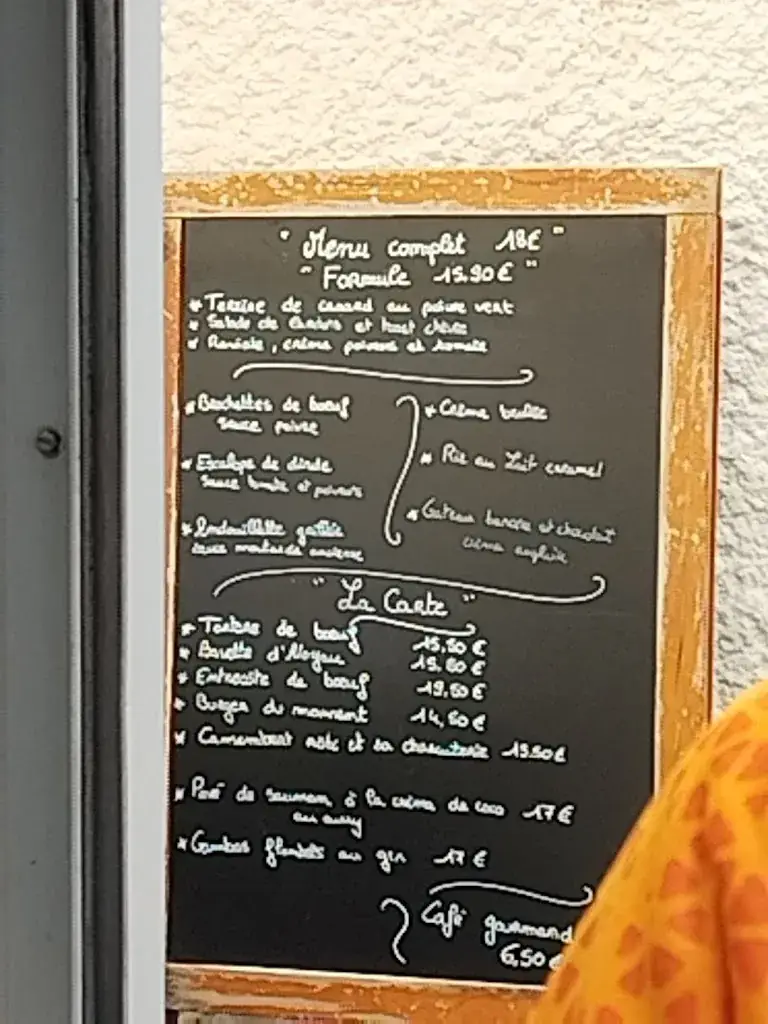 " Menu complet 18€ "
" Formule 15.90€ "
* Terrine de canard au poivre vert
* Salade de et toast chèvre
* , crème poivrons et tomate
* Brochettes de boeuf
sauce poivre
* Escalope de dinde
sauce tomate et poivrons
* Andouillette grillée
sauce moutarde ancienne
* Crème brulée
* Riz au Lait caramel
* Gateau banane et chocolat
crème anglaise
" La Carte "
* Tartare de boeuf 15.50€
* Bavette d'Aloyau
* Entrecôte de boeuf 19.50€
* Burger du moment 14,50€
* Camembert roti et sa charcuterie 15.50€
* Pavé de saumon à la crème de coco 17€
au curry
* Gambas flambés au gin 17€
Café gourmand
6,50€